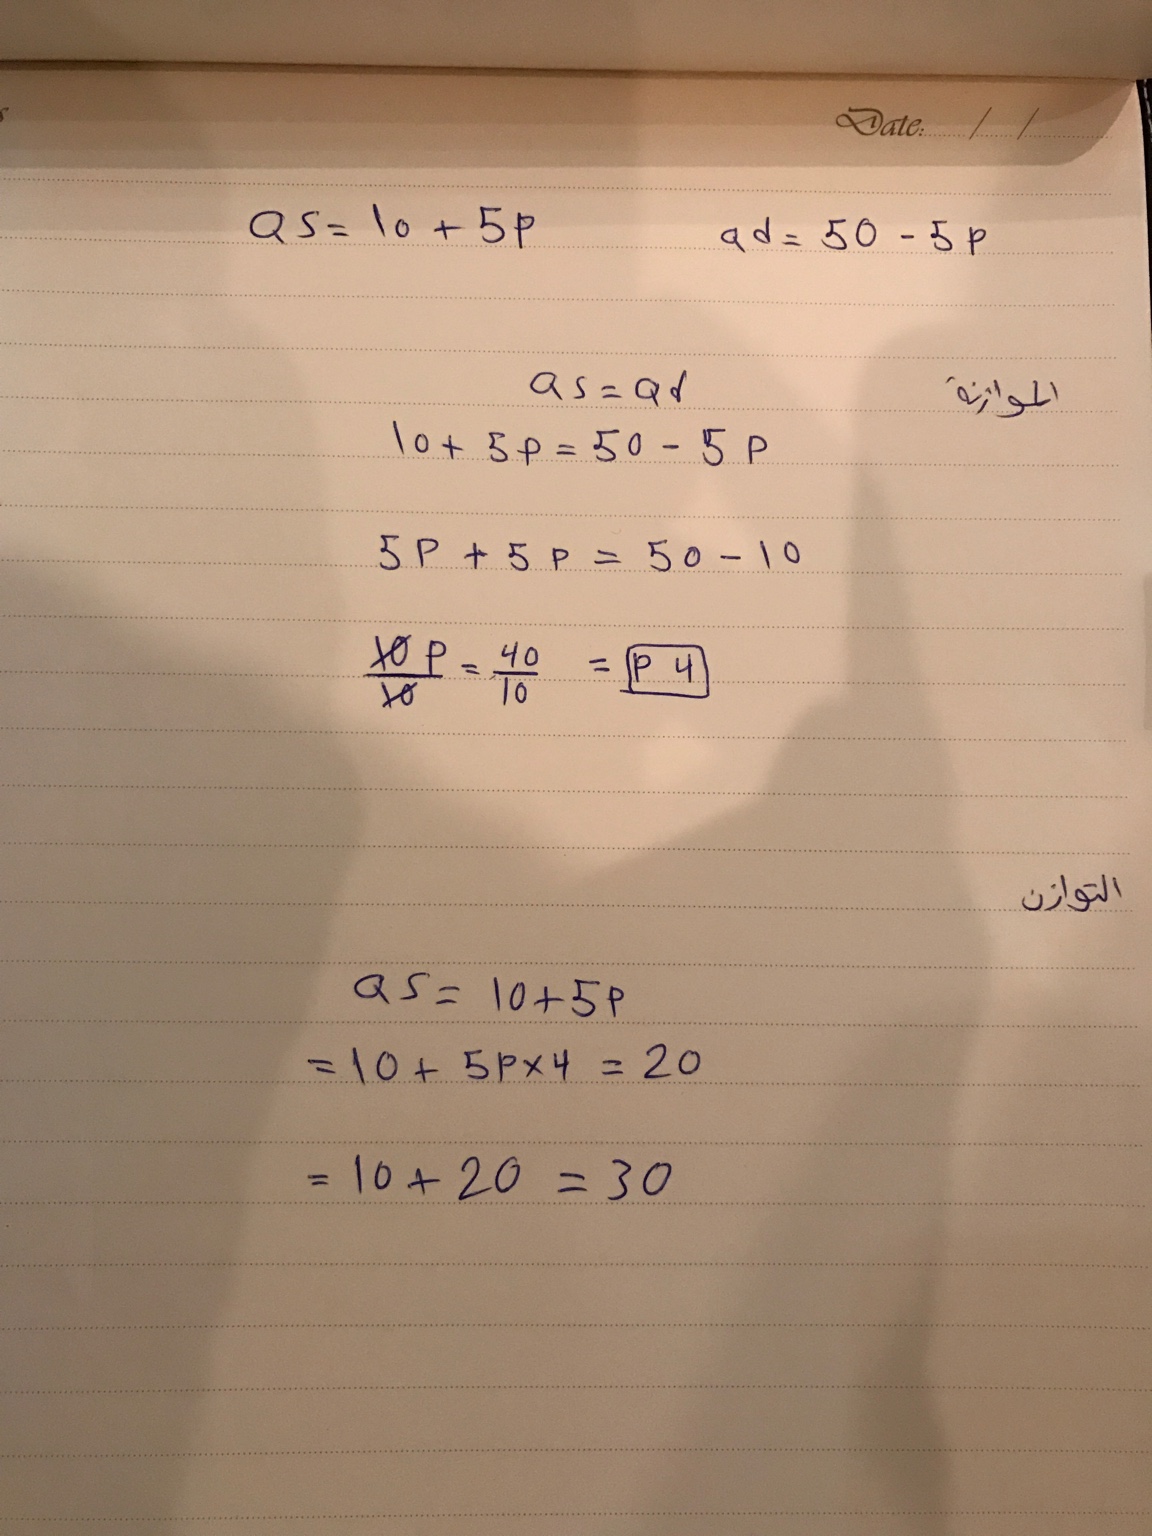 Date: / /
QS = 10 + 5P qd = 50 - 5P
الموازنة
QS = Qd
10 + 5P = 50 - 5P
5P + 5P = 50 - 10
10P/10 = 40/10 = P 4
التوازن
QS = 10+5P
= 10 + 5P×4 = 20
= 10 + 20 = 30